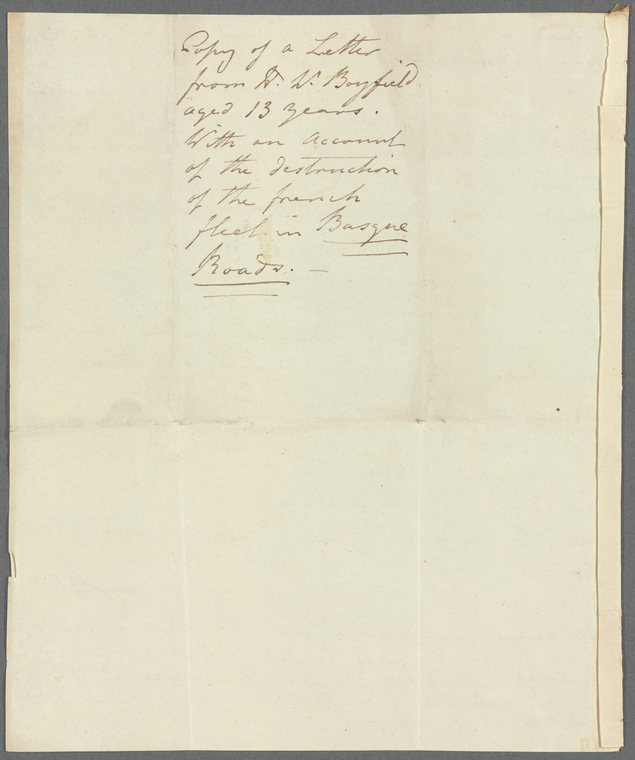 Copy of a Letter
from H. W. Bayfield
aged 13 years.
With an Account
of the destruction
of the french
fleet in Basque
Roads. —